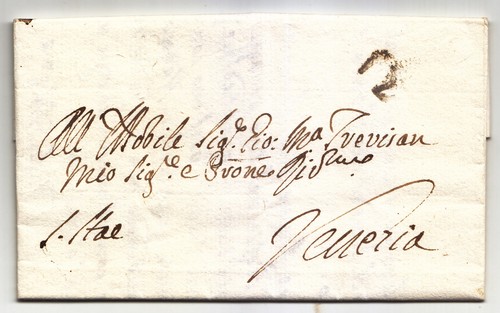 2
All Nobile Sig.r Gio: Ma Trevisan
Mio Sig.r e Prōne
S. Stae
Venezia